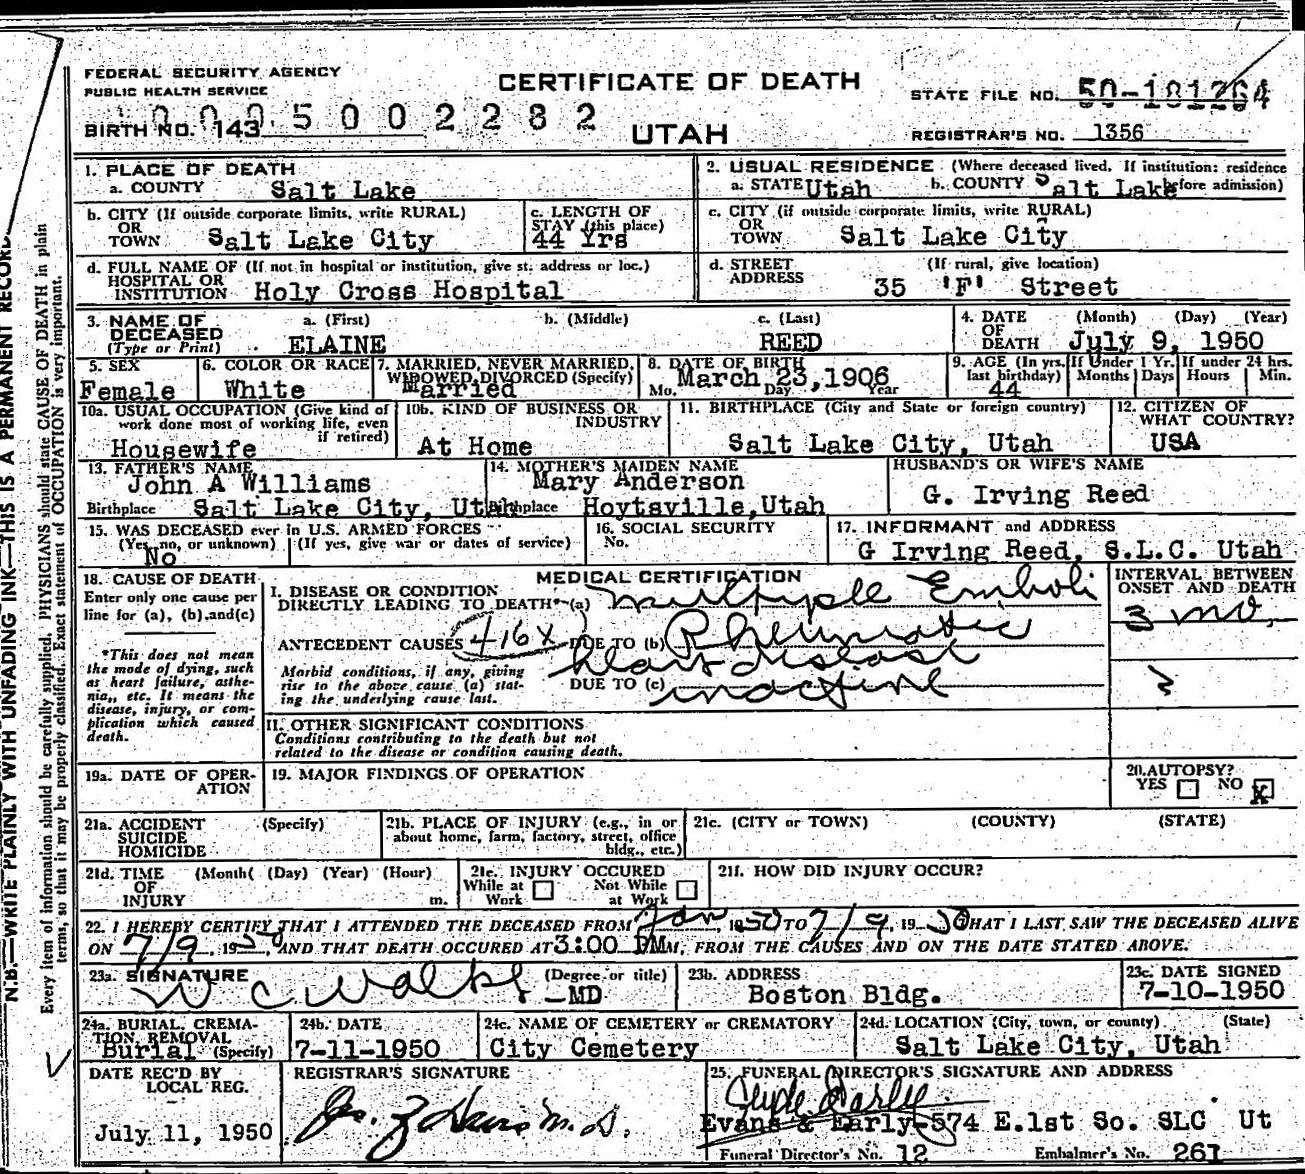 FEDERAL SECURITY AGENCY
PUBLIC HEALTH SERVICE
CERTIFICATE OF DEATH
STATE FILE NO. 50-181264
0095002282
BIRTH NO. 143
UTAH
REGISTRAR'S NO. 1356
1. PLACE OF DEATH
a. COUNTY Salt Lake
2. USUAL RESIDENCE (Where deceased lived. If institution: residence before admission)
a. STATE Utah b. COUNTY Salt Lake
b. CITY (If outside corporate limits, write RURAL)
OR
TOWN Salt Lake City
c. LENGTH OF
STAY (this place)
44 Yrs
c. CITY (if outside corporate limits, write RURAL)
OR
TOWN Salt Lake City
d. FULL NAME OF (If not in hospital or institution, give st. address or loc.)
HOSPITAL OR
INSTITUTION Holy Cross Hospital
d. STREET (If rural, give location)
ADDRESS 35 'F' Street
3. NAME OF
DECEASED
(Type or Print)
a. (First) b. (Middle) c. (Last)
ELAINE REED
4. DATE (Month) (Day) (Year)
OF
DEATH July 9, 1950
5. SEX
Female
6. COLOR OR RACE
White
7. MARRIED, NEVER MARRIED,
WIDOWED, DIVORCED (Specify)
Married
8. DATE OF BIRTH
Mo. Day Year
March 23, 1906
9. AGE (In yrs. last birthday) 44
If Under 1 Yr. Months Days
If under 24 hrs. Hours Min.
10a. USUAL OCCUPATION (Give kind of
work done most of working life, even
if retired)
Housewife
10b. KIND OF BUSINESS OR
INDUSTRY
At Home
11. BIRTHPLACE (City and State or foreign country)
Salt Lake City, Utah
12. CITIZEN OF
WHAT COUNTRY?
USA
13. FATHER'S NAME
John A Williams
Birthplace Salt Lake City, Utah
14. MOTHER'S MAIDEN NAME
Mary Anderson
Birthplace Hoytsville, Utah
HUSBAND'S OR WIFE'S NAME
G. Irving Reed
15. WAS DECEASED ever in U.S. ARMED FORCES
(Yes, no, or unknown) (If yes, give war or dates of service)
No
16. SOCIAL SECURITY
No.
17. INFORMANT and ADDRESS
G Irving Reed, S.L.C. Utah
18. CAUSE OF DEATH
Enter only one cause per
line for (a), (b), and (c)
*This does not mean
the mode of dying, such
as heart failure, asthe-
nia, etc. It means the
disease, injury, or com-
plication which caused
death.
MEDICAL CERTIFICATION
I. DISEASE OR CONDITION
DIRECTLY LEADING TO DEATH* (a) Multiple Emboli
ANTECEDENT CAUSES 416X DUE TO (b) Rheumatic
heart disease
Morbid conditions, if any, giving
rise to the above cause (a) stat-
ing the underlying cause last.
DUE TO (c) inactive
INTERVAL BETWEEN
ONSET AND DEATH
3 mo.
?
II. OTHER SIGNIFICANT CONDITIONS
Conditions contributing to the death but not
related to the disease or condition causing death.
19a. DATE OF OPER-
ATION
19. MAJOR FINDINGS OF OPERATION
20. AUTOPSY?
YES NO X
21a. ACCIDENT (Specify)
SUICIDE
HOMICIDE
21b. PLACE OF INJURY (e.g., in or
about home, farm, factory, street, office
bldg., etc.)
21c. (CITY or TOWN) (COUNTY) (STATE)
21d. TIME (Month( (Day) (Year) (Hour)
OF
INJURY m.
21e. INJURY OCCURED
While at Work Not While at Work
21f. HOW DID INJURY OCCUR?
22. I HEREBY CERTIFY THAT I ATTENDED THE DECEASED FROM Jan, 1950 TO 7/9, 1950 THAT I LAST SAW THE DECEASED ALIVE
ON 7/9, 1950, AND THAT DEATH OCCURED AT 3:00 PM M, FROM THE CAUSES AND ON THE DATE STATED ABOVE.
23a. SIGNATURE (Degree or title)
W C Walker MD
23b. ADDRESS
Boston Bldg.
23c. DATE SIGNED
7-10-1950
24a. BURIAL, CREMA-
TION, REMOVAL
(Specify)
Burial
24b. DATE
7-11-1950
24c. NAME OF CEMETERY or CREMATORY
City Cemetery
24d. LOCATION (City, town, or county) (State)
Salt Lake City, Utah
DATE REC'D BY
LOCAL REG.
July 11, 1950
REGISTRAR'S SIGNATURE
M.D.
25. FUNERAL DIRECTOR'S SIGNATURE AND ADDRESS
Clyde Earley
Evans & Early-574 E.1st So. SLC Ut
Funeral Director's No. 12 Embalmer's No. 261
N.B.—WRITE PLAINLY WITH UNFADING INK—THIS IS A PERMANENT RECORD
Every item of information should be carefully supplied. PHYSICIANS should state CAUSE OF DEATH in plain
terms, so that it may be properly classified. Exact statement of OCCUPATION is very important.